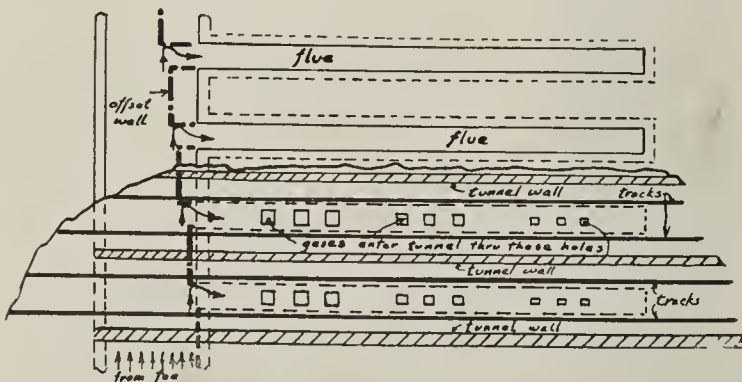 flue
offset
wall
flue
tunnel wall
tracks
gases enter tunnel thru these holes
tunnel wall
tracks
tunnel wall
from fan